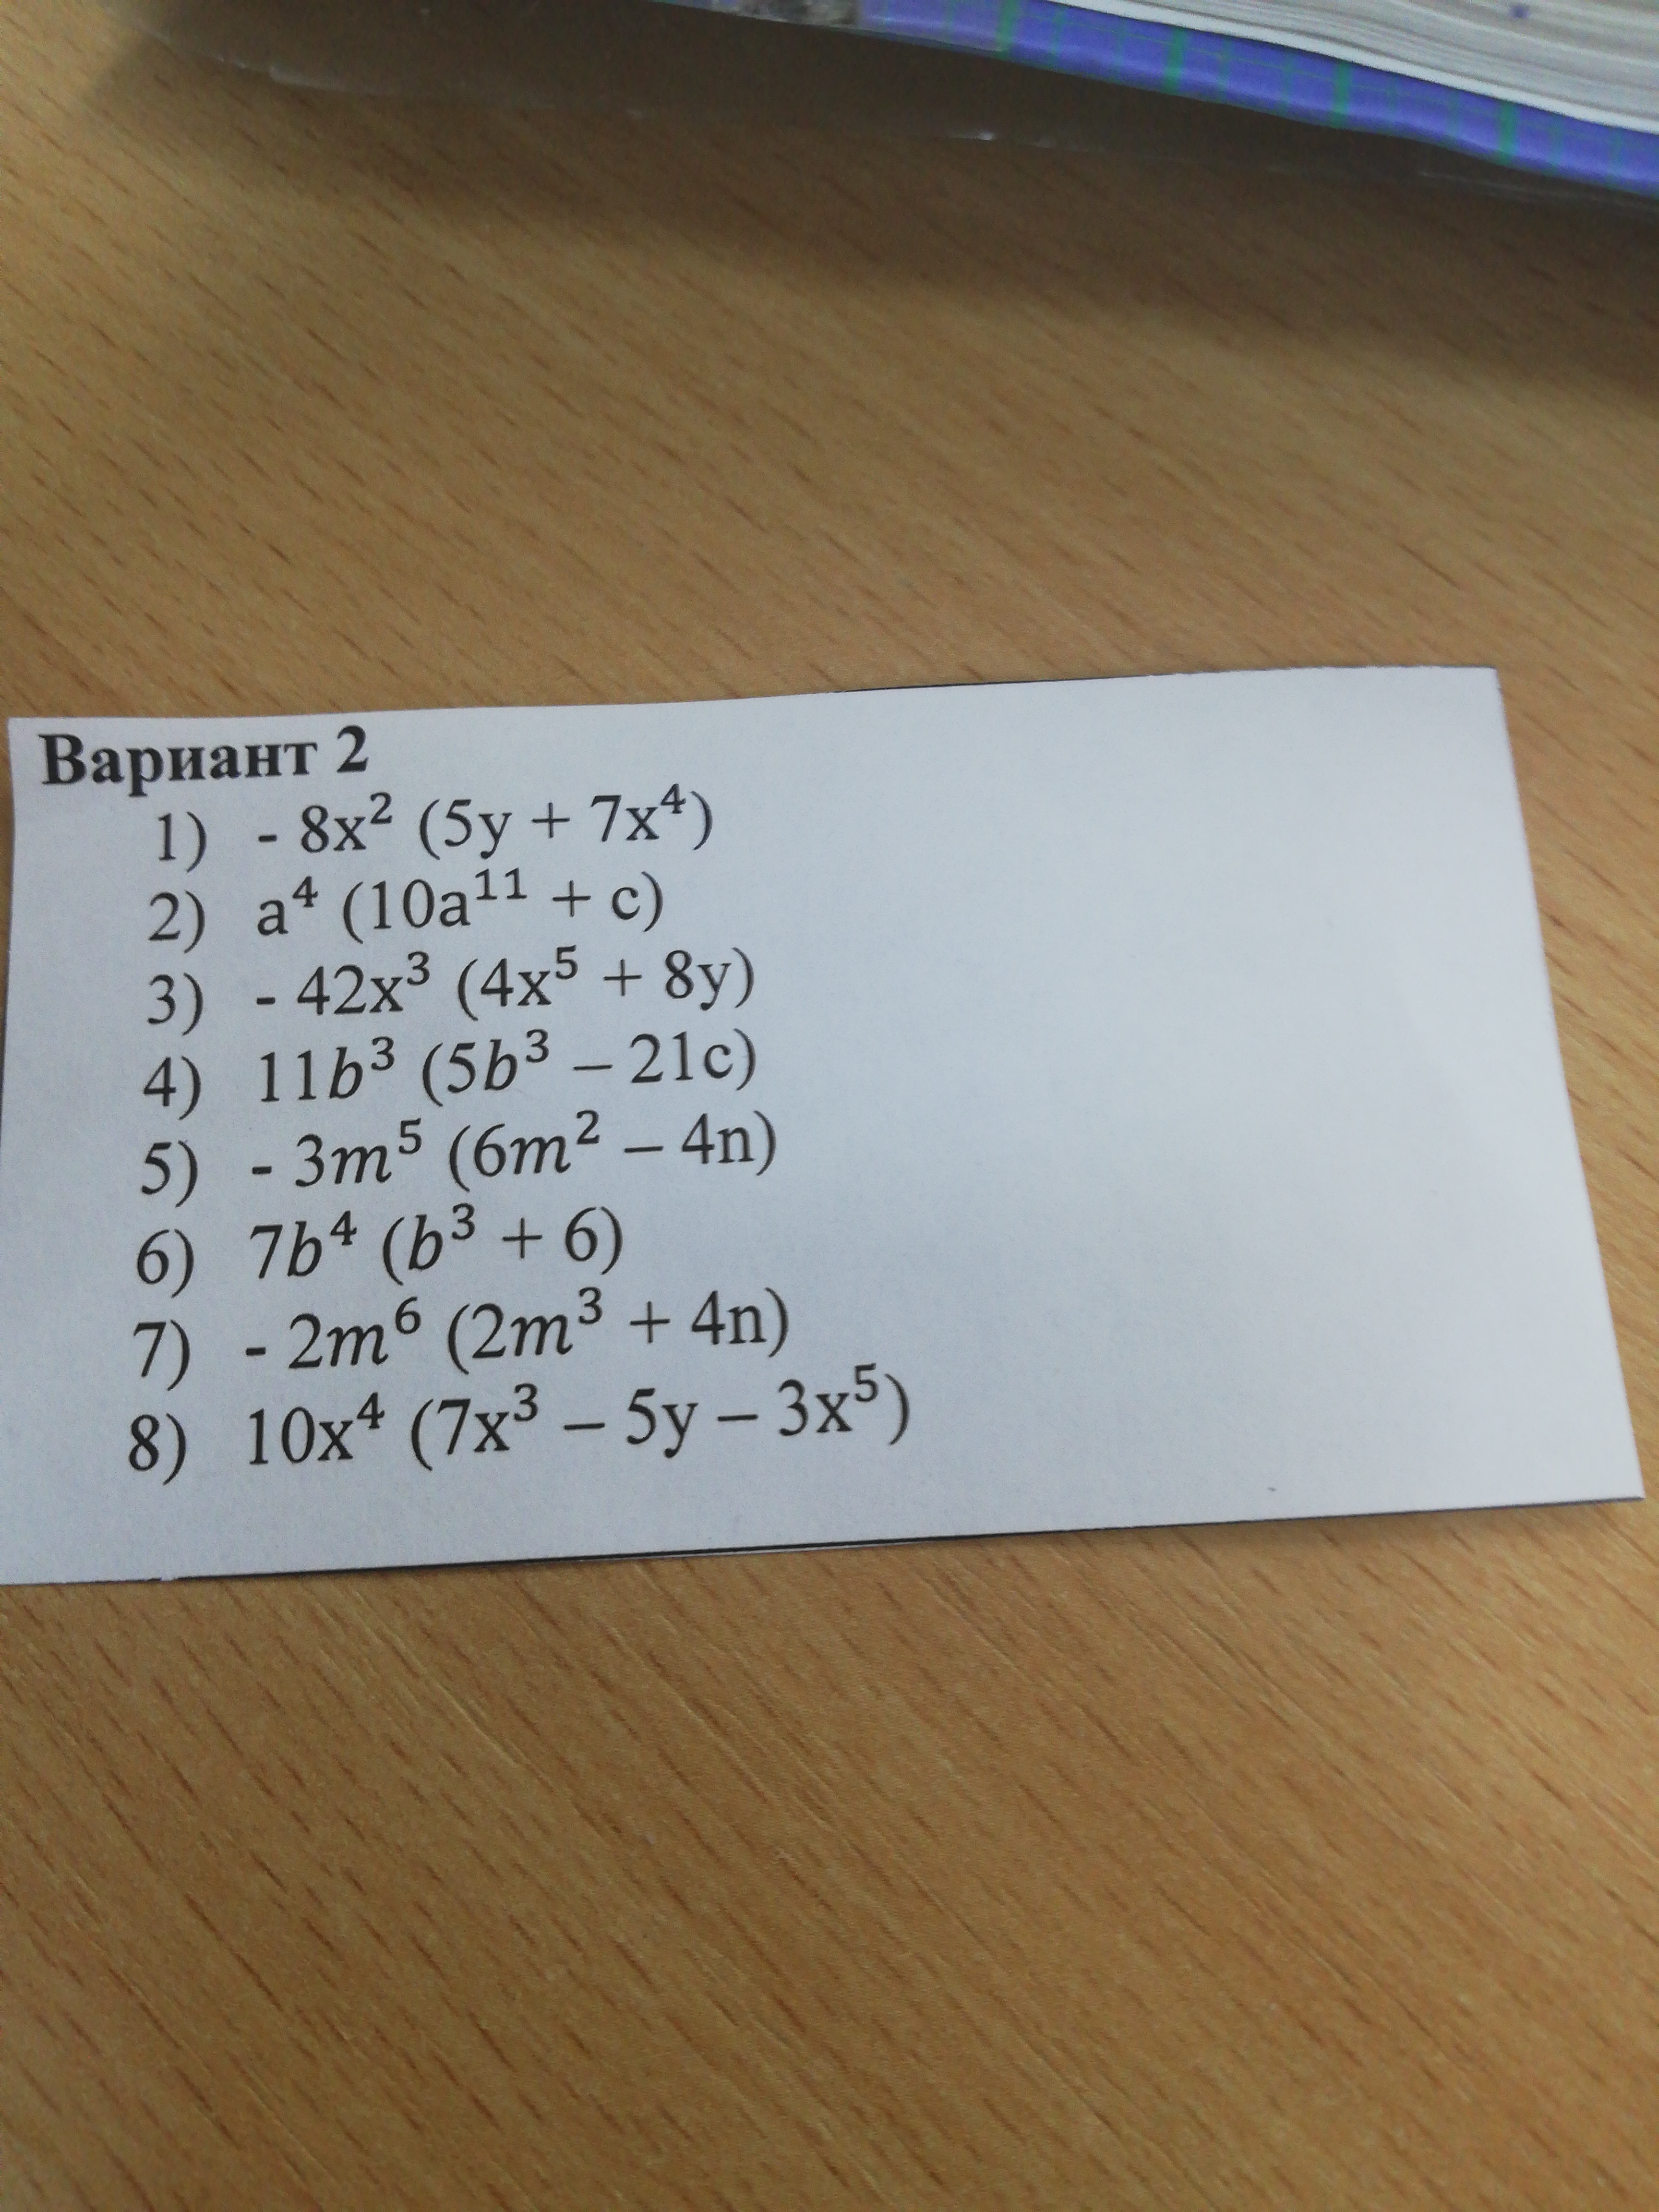 Вариант 2
1) - 8x² (5y + 7x⁴)
2) a⁴ (10a¹¹ + c)
3) - 42x³ (4x⁵ + 8y)
4) 11b³ (5b³ – 21c)
5) - 3m⁵ (6m² – 4n)
6) 7b⁴ (b³ + 6)
7) - 2m⁶ (2m³ + 4n)
8) 10x⁴ (7x³ – 5y – 3x⁵)